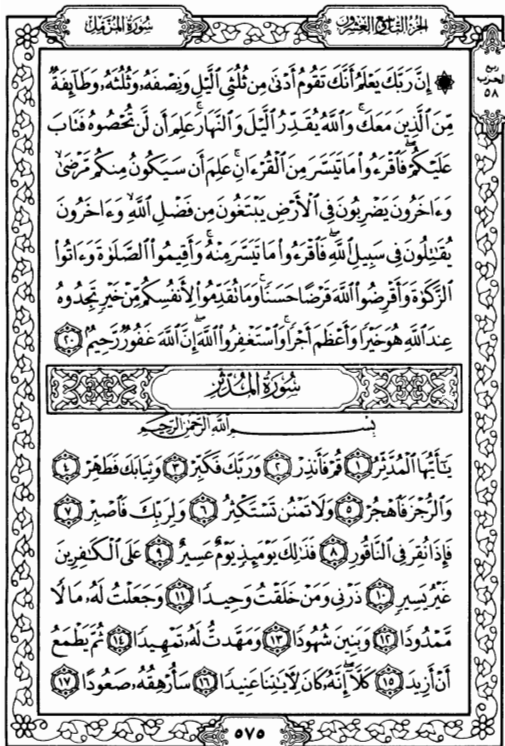 سُورَةُ المُزَّمِّل
الجُزْءُ التَّاسِعُ وَالعِشْرُونَ
ربع
الحزب
٥٨
۞ إِنَّ رَبَّكَ يَعْلَمُ أَنَّكَ تَقُومُ أَدْنَىٰ مِن ثُلُثَيِ ٱلَّيْلِ وَنِصْفَهُۥ وَثُلُثَهُۥ وَطَآئِفَةٌ
مِّنَ ٱلَّذِينَ مَعَكَ ۚ وَٱللَّهُ يُقَدِّرُ ٱلَّيْلَ وَٱلنَّهَارَ ۚ عَلِمَ أَن لَّن تُحْصُوهُ فَتَابَ
عَلَيْكُمْ ۖ فَٱقْرَءُوا۟ مَا تَيَسَّرَ مِنَ ٱلْقُرْءَانِ ۚ عَلِمَ أَن سَيَكُونُ مِنكُم مَّرْضَىٰ ۙ
وَءَاخَرُونَ يَضْرِبُونَ فِى ٱلْأَرْضِ يَبْتَغُونَ مِن فَضْلِ ٱللَّهِ ۙ وَءَاخَرُونَ
يُقَـٰتِلُونَ فِى سَبِيلِ ٱللَّهِ ۖ فَٱقْرَءُوا۟ مَا تَيَسَّرَ مِنْهُ ۚ وَأَقِيمُوا۟ ٱلصَّلَوٰةَ وَءَاتُوا۟
ٱلزَّكَوٰةَ وَأَقْرِضُوا۟ ٱللَّهَ قَرْضًا حَسَنًا ۚ وَمَا تُقَدِّمُوا۟ لِأَنفُسِكُم مِّنْ خَيْرٍ تَجِدُوهُ
عِندَ ٱللَّهِ هُوَ خَيْرًا وَأَعْظَمَ أَجْرًا ۚ وَٱسْتَغْفِرُوا۟ ٱللَّهَ ۖ إِنَّ ٱللَّهَ غَفُورٌ رَّحِيمٌۢ ٢٠
سُورَةُ المُدَّثِّر
بِسْمِ ٱللَّهِ ٱلرَّحْمَـٰنِ ٱلرَّحِيمِ
يَـٰٓأَيُّهَا ٱلْمُدَّثِّرُ ١ قُمْ فَأَنذِرْ ٢ وَرَبَّكَ فَكَبِّرْ ٣ وَثِيَابَكَ فَطَهِّرْ ٤
وَٱلرُّجْزَ فَٱهْجُرْ ٥ وَلَا تَمْنُن تَسْتَكْثِرُ ٦ وَلِرَبِّكَ فَٱصْبِرْ ٧
فَإِذَا نُقِرَ فِى ٱلنَّاقُورِ ٨ فَذَٰلِكَ يَوْمَئِذٍ يَوْمٌ عَسِيرٌ ٩ عَلَى ٱلْكَـٰفِرِينَ
غَيْرُ يَسِيرٍ ١٠ ذَرْنِى وَمَنْ خَلَقْتُ وَحِيدًا ١١ وَجَعَلْتُ لَهُۥ مَالًا
مَّمْدُودًا ١٢ وَبَنِينَ شُهُودًا ١٣ وَمَهَّدتُّ لَهُۥ تَمْهِيدًا ١٤ ثُمَّ يَطْمَعُ
أَنْ أَزِيدَ ١٥ كَلَّآ ۖ إِنَّهُۥ كَانَ لِـَٔايَـٰتِنَا عَنِيدًا ١٦ سَأُرْهِقُهُۥ صَعُودًا ١٧
٥٧٥